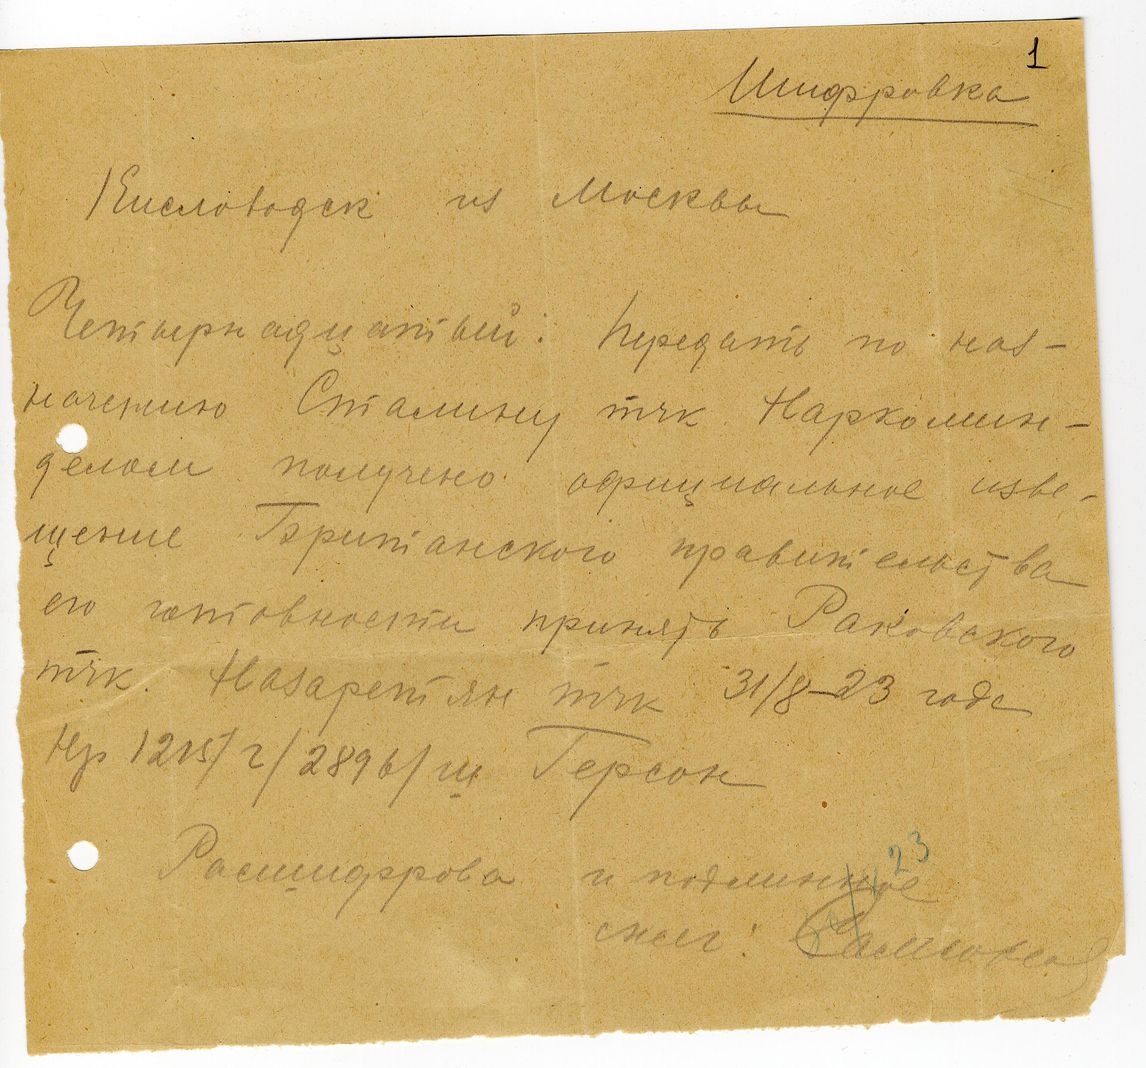 1
Шифровка
Кисловодск из Москвы
Четырнадцатый: Передать по наз-
начению Сталину тчк Наркомин-
делом получено официальное изве-
щение Британского правительства
его готовности принять Раковского
тчк. Назаретян тчк 31/8-23 года
Нр 1215/г/2896/ш Герсон
23
Расшифрова и подлинное
сжег: